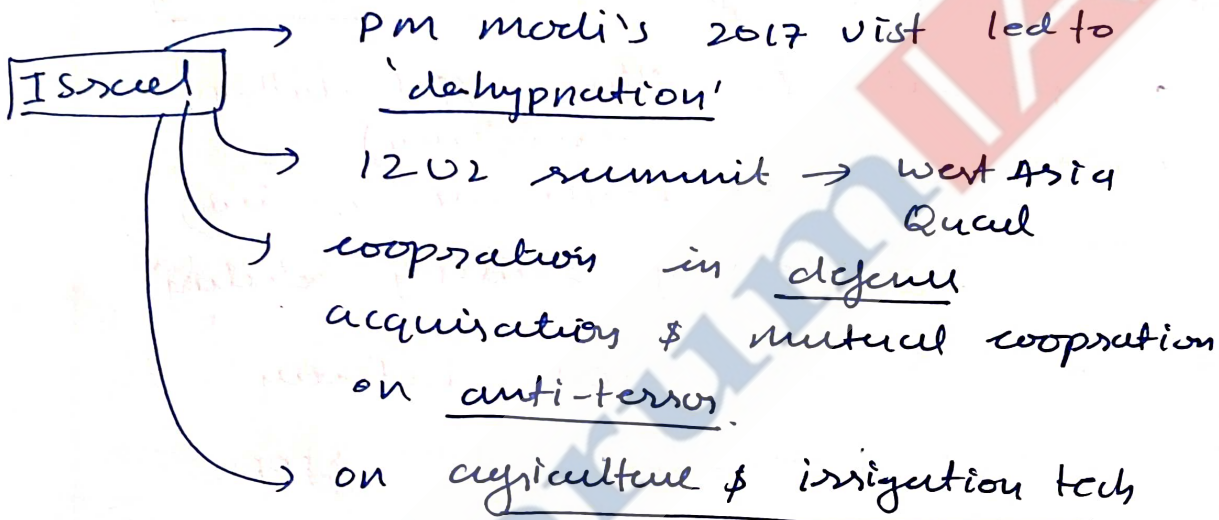 PM Modi's 2017 vist led to
Israel
'dehypnation'
I2U2 summit → West Asia
Quad
coopration in defence
acquisation & mutual coopration
on anti-terror.
on agriculture & irrigation tech
rum IA